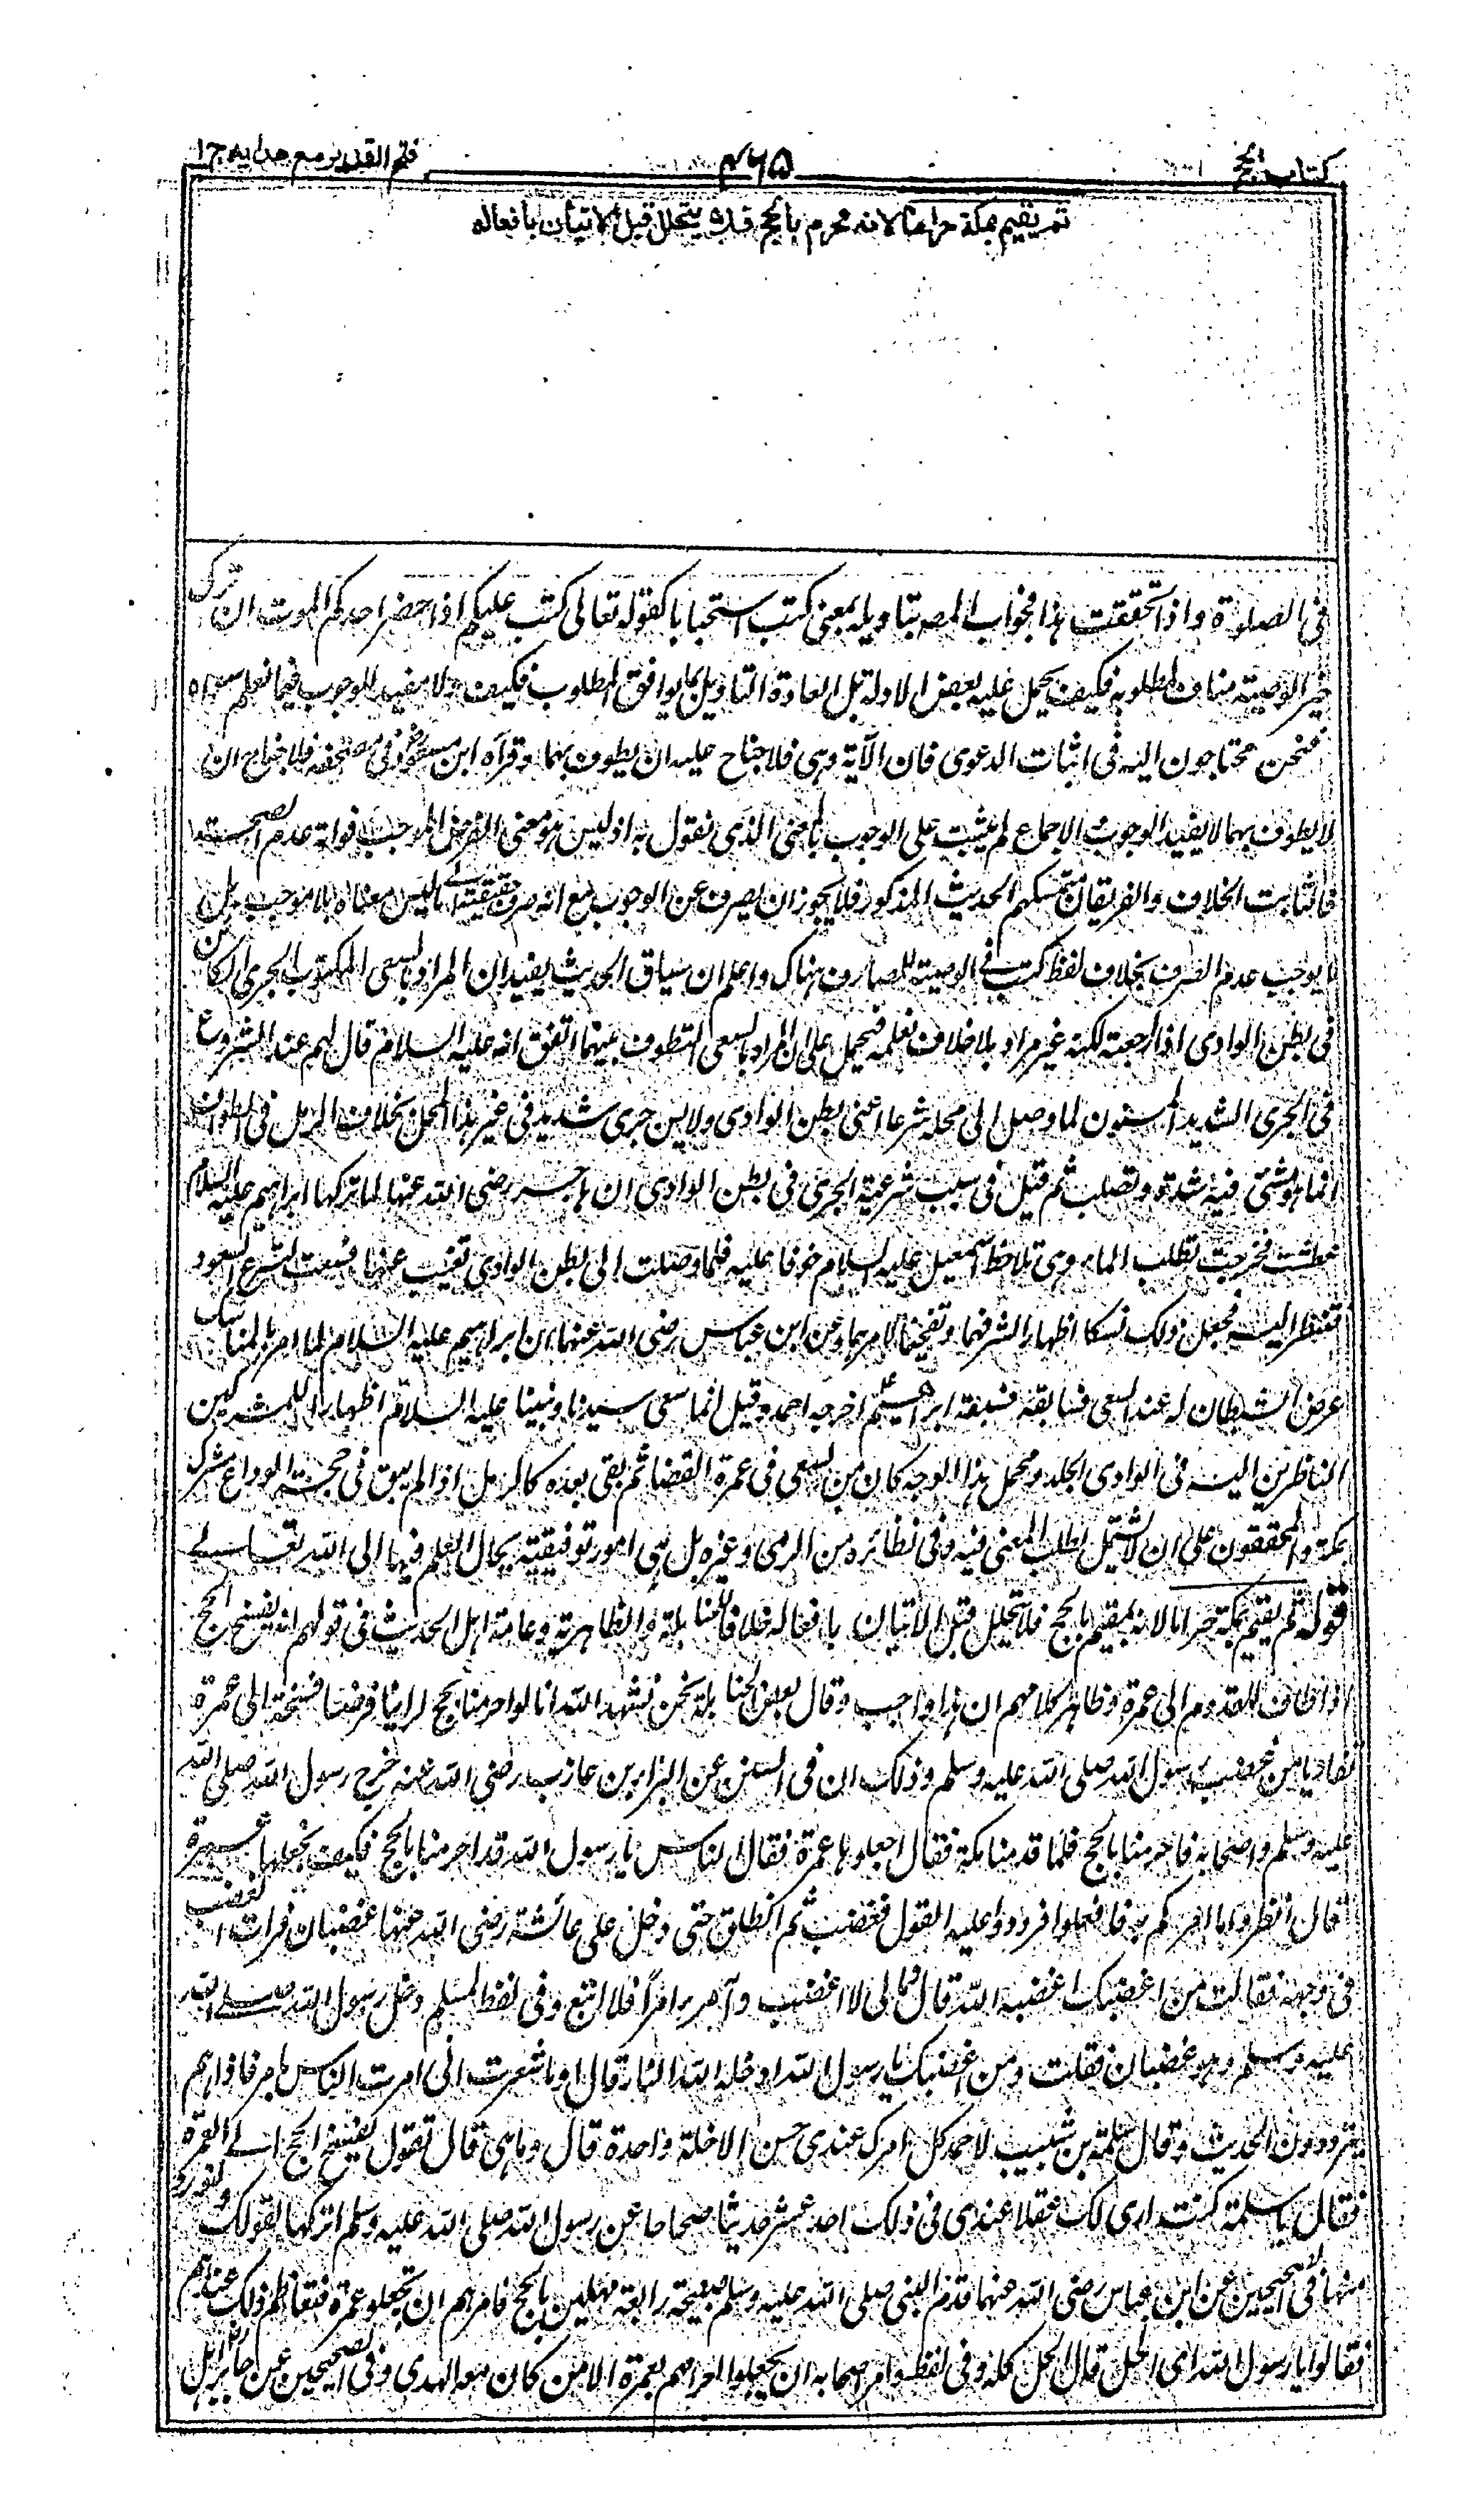 كتاب الحج
٤٦٥
فتح القدير مع هدايه ج ١
ثم يقيم بمكة حراما لانه محرم بالحج فلا يتحلل قبل الاتيان بافعاله
فى الصلوة واذا تحققت هذا فجواب المصـ بتاويله بمعنى كتب استحبابا كقوله تعالى كتب عليكم اذا حضر احدكم الموت ان ترك
خير الوصية مناف لمطلوبه فكيف يحمل عليه بعض الادلة بل العادة التاويل بما يوافق المطلوب فكيف ولا مفيد للوجوب فيما نعلم سواه
فنحن محتاجون اليه فى اثبات الدعوى فان الآية وهى فلا جناح عليه ان يطوف بهما وقرآة ابن مسعود فى مصحفه فلا جناح ان
لا يطوف بهما لا يفيد الوجوب والاجماع لم يثبت على الوجوب بالمعنى الذى نقول به اذ ليس هو معنى الفرض الموجب فواته عدم الصحة
فالثابت الخلاف والفريقان متمسكهم الحديث المذكور فلا يجوز ان يصرف عن الوجوب مع انه صرف حقيقته الى ما ليس معناه بلا موجب بل
ما يوجب عدم الصرف بخلاف لفظ كتب فى الوصية للصارف هناك واعلم ان سياق الحديث يفيد ان المراد بالسعى المكتوب الجرى الكائن
فى بطن الوادى اذا راجعته لكنه غير مراد بلا خلاف نعلمه فيحمل على ان المراد بالسعى التطوف بينهما اتفق انه عليه السلام قال لهم عند الشروع
فى الجرى الشديد المسنون لما وصل الى محله شرعا اعنى بطن الوادى ولا يسن جرى شديد فى غير هذا المحل بخلاف الرمل فى الطواف
انما هو مشى فيه شدة وتصلب ثم قيل فى سبب شرعية الجرى فى بطن الوادى ان هاجر رضى الله عنها لما تركها ابراهيم عليه السلام
عطشت فخرجت تطلب الماء وهى تلاحظ اسمعيل عليه السلام خوفا عليه فلما وصلت الى بطن الوادى تغيب عنها فسعت لتسرع الصعود
فتنظر اليه فجعل ذلك نسكا اظهارا لشرفهما وتفخيما لامرهما وعن ابن عباس رضى الله عنهما ان ابراهيم عليه السلام لما امر بالمناسك
عرض الشيطان له عند السعى فسابقه فسبقه ابراهيم اخرجه احمد وقيل انما سعى سيدنا ونبينا عليه السلام اظهارا للمشركين
الناظرين اليه فى الوادى الجلد ومحمل هذا الوجه كان من السعى فى عمرة القضاء ثم بقى بعده كالرمل اذ لم يبق فى حجة الوداع مشرك
بمكة والمحققون على ان لا يشتغل بطلب المعنى فيه وفى نظائره من الرمى وغيره بل هى امور توقيفية يحال العلم فيها الى الله تعالى
قوله ثم يقيم بمكة حراما لانه مقيم بالحج فلا يتحلل قبل الاتيان بافعاله خلافا للحنابلة والظاهرية وعامة اهل الحديث فى قولهم انه يفسخ الحج
اذا طاف للقدوم الى عمرة وظاهر كلامهم ان هذا واجب وقال بعض الحنابلة نحن نشهد الله انا لو احرمنا بحج لراينا فرضا فسخه الى عمرة
تفاديا من غضب رسول الله صلى الله عليه وسلم وذلك ان فى السنن عن البراء بن عازب رضى الله عنه خرج رسول الله صلى الله
عليه وسلم واصحابه فاحرمنا بالحج فلما قدمنا مكة فقال اجعلوها عمرة فقال الناس يا رسول الله قد احرمنا بالحج فكيف نجعلها عمرة
قال انظروا ما امركم به فافعلوا فردوا عليه القول فغضب ثم انطلق حتى دخل على عائشة رضى الله عنها غضبان فرات الغضب
فى وجهه فقالت من اغضبك اغضبه الله قال مالى لا اغضب وآمر امرا فلا اتبع وفى لفظ لمسلم دخل رسول الله صلى الله
عليه وسلم وهو غضبان فقلت ومن اغضبك يا رسول الله ادخله الله النار قال او ما شعرت انى امرت الناس بامر فاذا هم
يترددون الحديث وقال سلمة بن شبيب لاحمد كل امرك عندى حسن الا خلة واحدة قال وما هى قال تقول بفسخ الحج الى العمرة
فقال يا سلمة كنت ارى لك عقلا عندى فى ذلك احد عشر حديثا صحاحا عن رسول الله صلى الله عليه وسلم اتركها لقولك
منها فى الصحيحين عن ابن عباس رضى الله عنهما قدم النبى صلى الله عليه وسلم صبيحة رابعة مهلين بالحج فامرهم ان يجعلوها عمرة فتعاظم ذلك عندهم
فقالوا يا رسول الله اى الحل قال الحل كله وفى لفظ وامر اصحابه ان يجعلوا احرامهم بعمرة الا من كان معه الهدى وفى الصحيحين عن جابر اهل